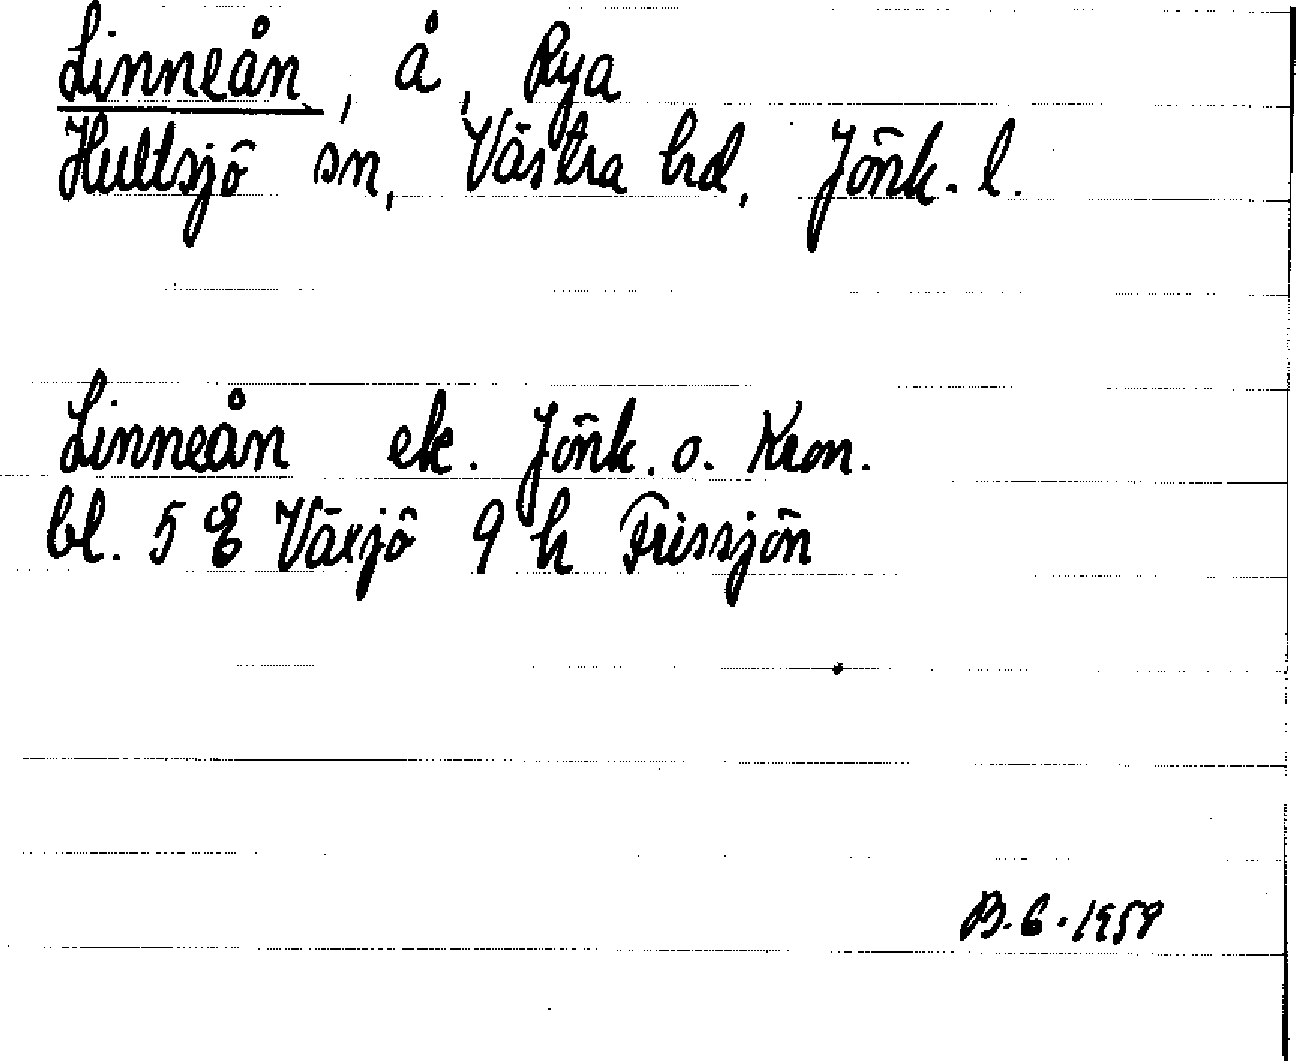 Linneån, å, Rya
Hultsjö sn, Västra hd, Jönk. l.
Linneån ek. Jönk. o. Kron.
bl. 5 E Växjö 9 h Frissjön
B. G. 1959